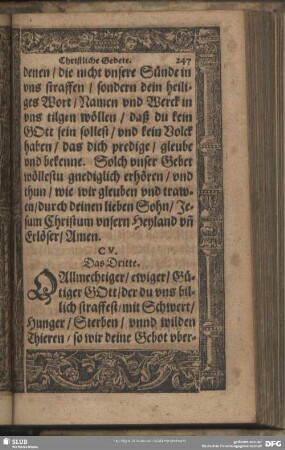 Christliche Gebete. 247
denen / die nicht vnsere Sünde in
vns straffen / sondern dein heili-
ges Wort / Namen vnd Werck in
vns tilgen wöllen / daß du kein
GOtt sein sollest / vnd kein Volck
haben / das dich predige / gleube
vnd bekenne. Solch vnser Gebet
wöllestu gnediglich erhören / vnd
thun / wie wir gleuben vnd traw-
en / durch deinen lieben Sohn / Je-
sum Christum vnsern Heyland vñ
Erlöser / Amen.
CV.
Das Dritte.
O Allmechtiger / ewiger / Gü-
tiger GOtt / der du vns bil-
lich straffest / mit Schwert /
Hunger / Sterben / vnnd wilden
Thieren / so wir deine Gebot vber-
SLUB
DFG